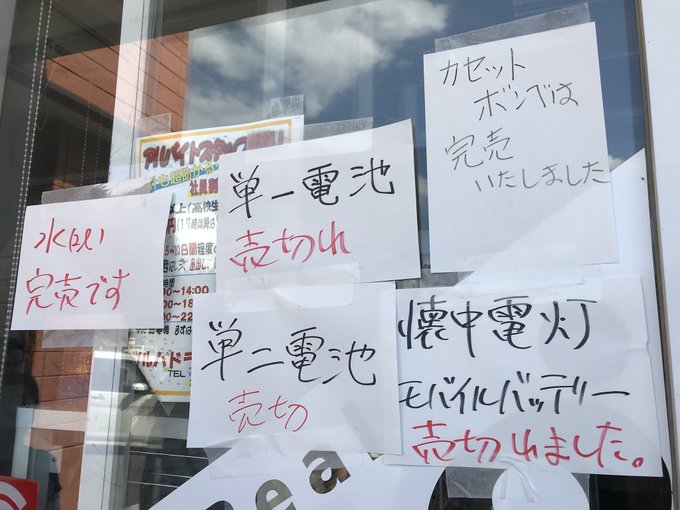 カセット
ボンベは
完売
いたしました
単一電池
売切れ
完売です
単二電池
売切
懐中電灯
モバイルバッテリー
売切れました。
アルバイトスタッフ
社員割
以上(高校生
円(17時以降は
5~10日間程度の
00~14:00
00~18
00~22
アルバドラ
TEL
Rea